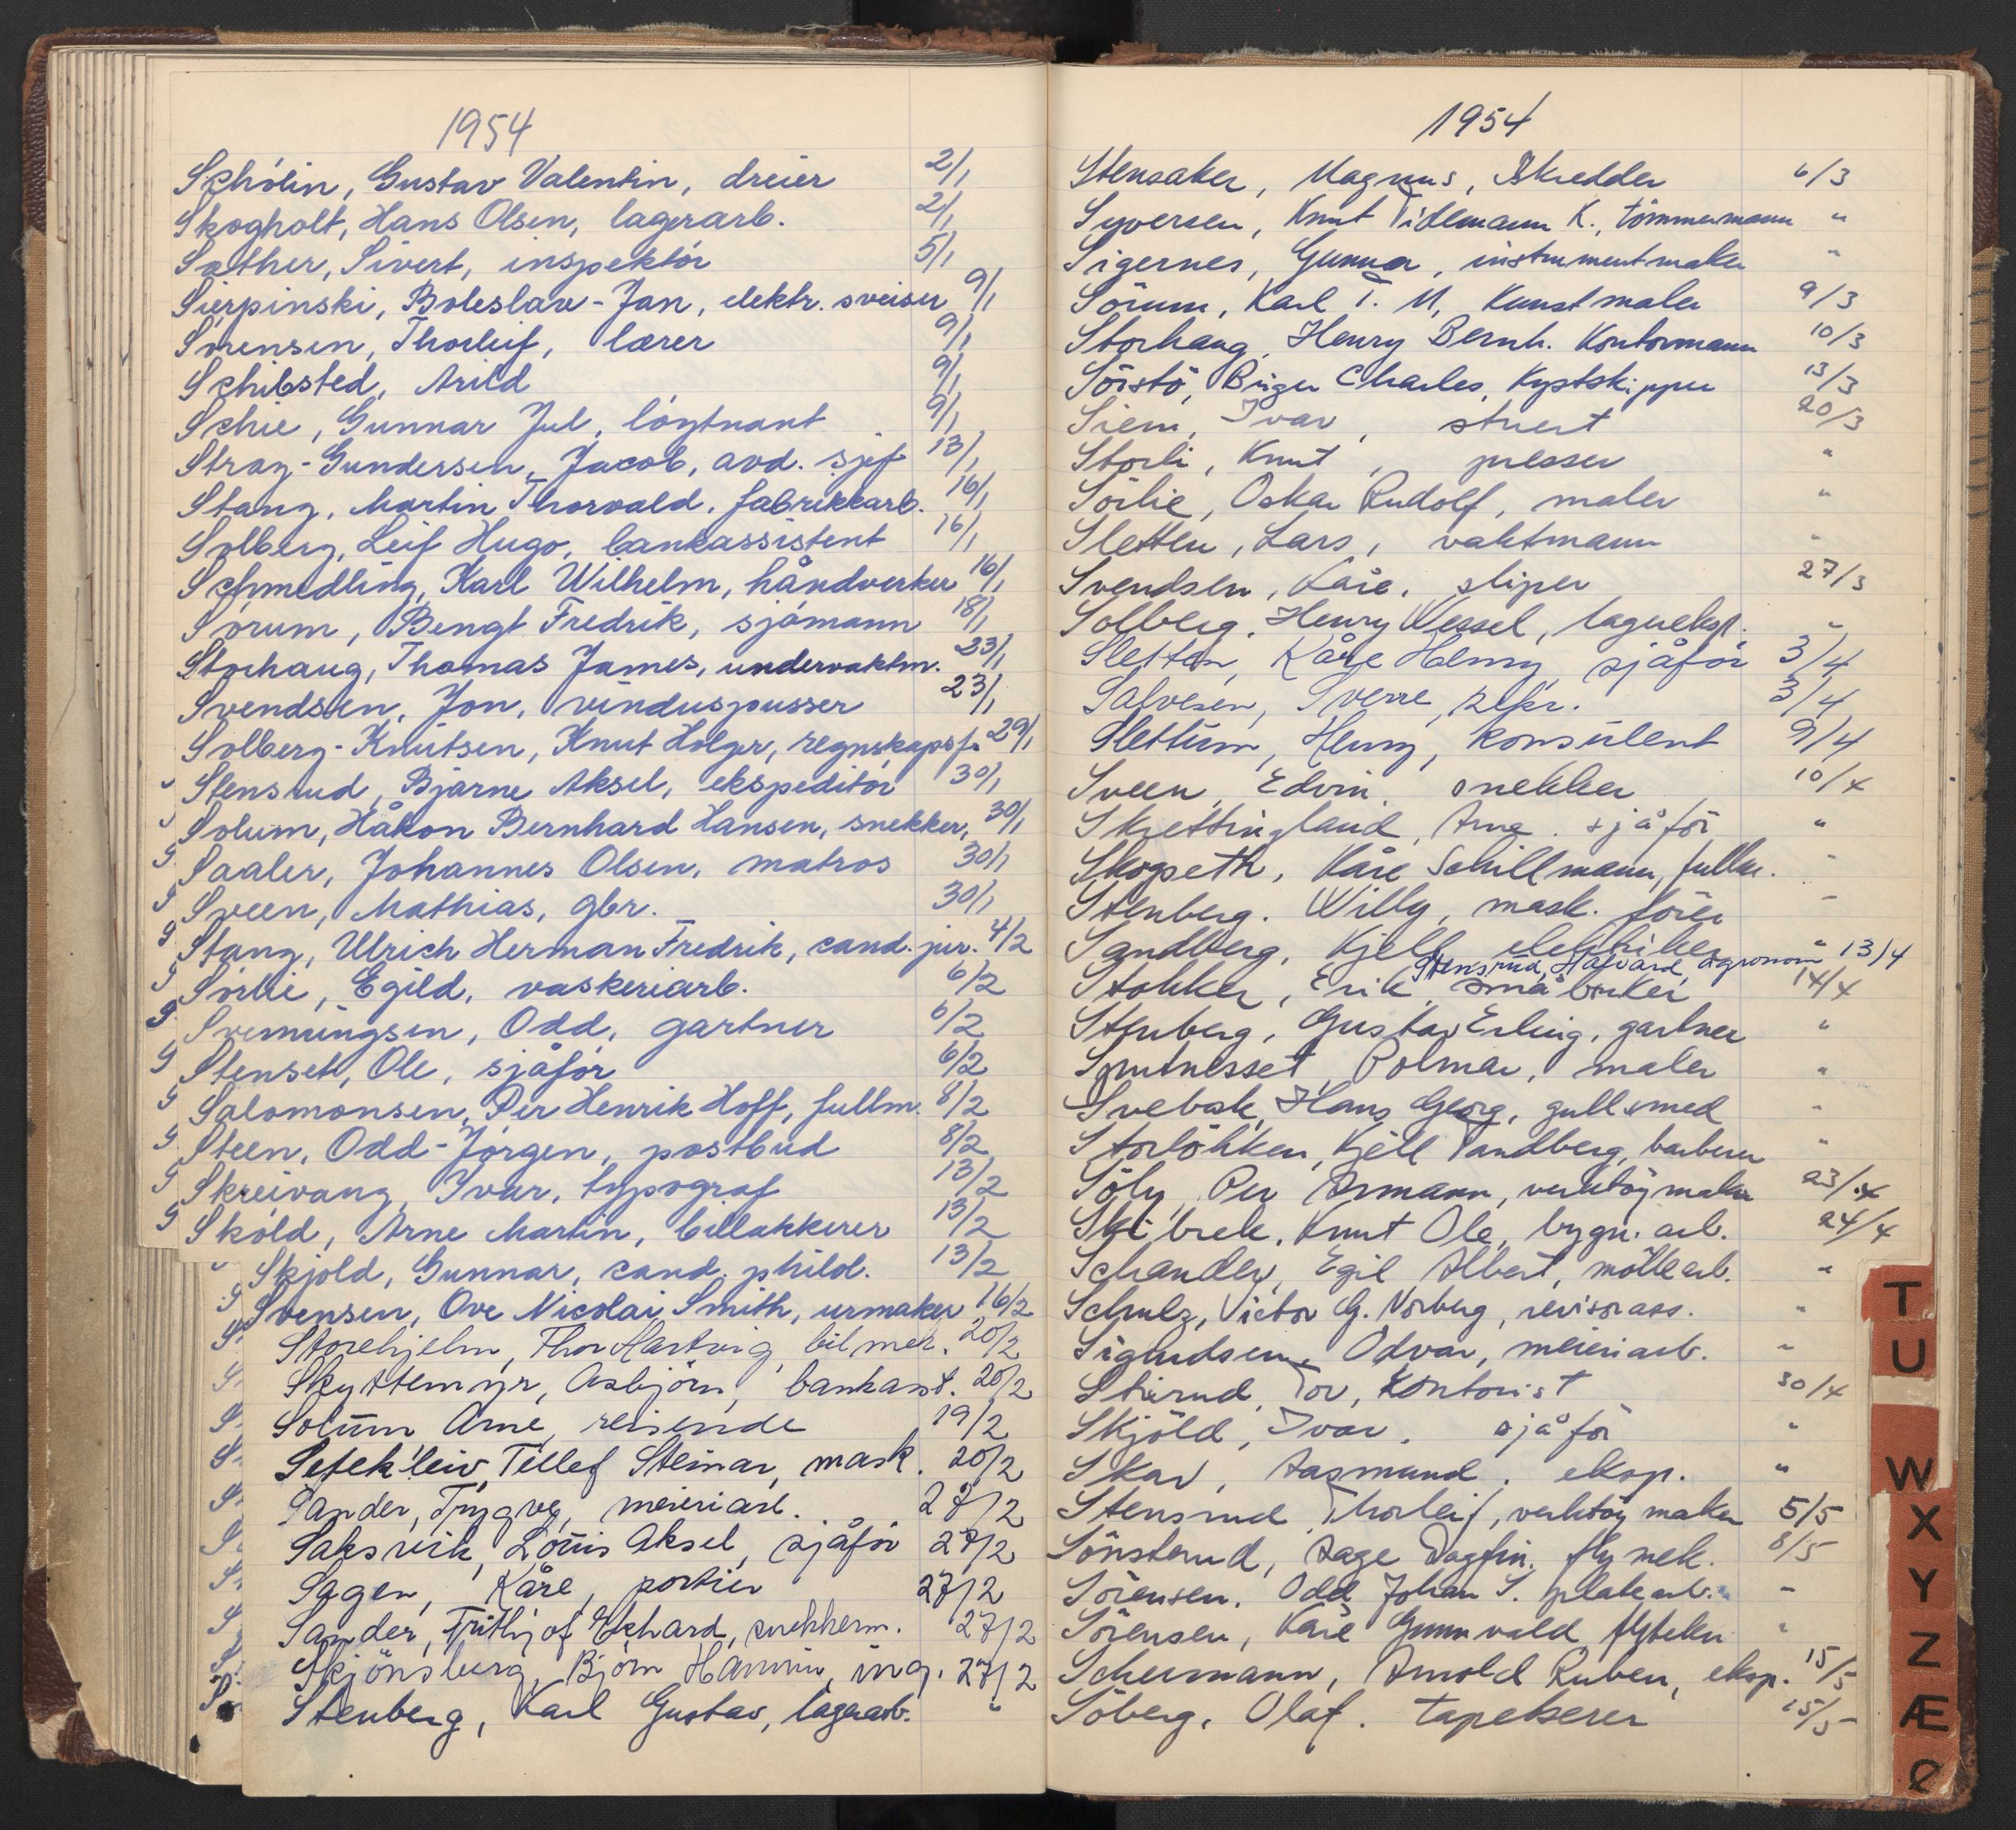 1954
Schölin, Gustav Valentin, dreier 2/1
Skogholt, Hans Olsen, lagerarb. 2/1
Sæther, Sivert, inspektör 5/1
Sierpinski, Boleslav-Jan, elektr. sveiser 9/1
Sörensen, Thorleif, lærer 9/1
Schibsted, Arild 9/1
Schie, Gunnar Jul, löytnant 9/1
Stray-Gundersen, Jacob, avd. sjef 13/1
Stang, Martin Thorvald, fabrikkarb. 16/1
Solberg, Leif Hugo, bankassistent 16/1
Schmedling, Karl Wilhelm, håndverker 16/1
Sörum, Bengt Fredrik, sjömann 18/1
Storhaug, Thomas James, undervaktm. 23/1
Svendsen, Jon, vinduspusser 23/1
Solberg-Knutsen, Knut Holger, regnskapsf. 29/1
Stensrud, Bjarne Aksel, ekspeditör 30/1
Solum, Håkon Bernhard Hansen, snekker, 30/1
Saaler, Johannes Olsen, matros 30/1
Sveen, Mathias, gbr. 30/1
Stang, Ulrich Herman Fredrik, cand. jur. 4/2
Sörlie, Egild, vaskeriarb. 6/2
Svenningsen, Odd, gartner 6/2
Stenseth, Ole, sjåför 6/2
Salomonsen, Per Henrik Hoff, fullm. 8/2
Steen, Odd-Jörgen, postbud 8/2
Skreivang, Ivar, typograf 13/2
Sköld, Arne Martin, billakkerer 13/2
Skjold, Gunnar, cand. philol. 13/2
Svensen, Ove Nicolai Smith, urmaker 16/2
Storehjelm, Thor Hartvig, bilmek. 20/2
Skyttemyr, Asbjörn, bankasst. 20/2
Solum Arne, reisende 19/2
Setekleiv, Tellef Steinar, mask. 20/2
Sander, Trygve, meieriarb. 27/2
Saksvik, Louis Aksel, sjåför 27/2
Sagen, Kåre, portier 27/2
Sander, Frithjof Ekhard, snekkerm. 27/2
Skjönsberg, Björn Hamnin, ing. 27/2
Stenberg, Karl Gustav, lagerarb. "
1954
Stensaker, Magnus, Skredder 6/3
Syversen, Knut Tidemann K., tömmermann "
Sigernes, Gunnar, instrumentmaker "
Sörum, Karl T. M, Kunstmaler 9/3
Storhaug, Henry Bernh. Kontormann 10/3
Söistö, Birger Charles, Kystskipper 13/3
Siem, Ivar, stuert 20/3
Storli, Knut, presser "
Sörlie, Oskar Rudolf, maler "
Sletten, Lars, vaktmann "
Svendsen, Kåre, sliper 27/3
Solberg, Henry Wessel, lagereksp. "
Sletten, Kåre Henry sjåför 3/4
Salvesen, Sverre, repr. 3/4
Slettum, Henry, konsulent 9/4
Sveen, Edvin snekker 10/4
Skrettingland, Arne. sjåför "
Skogseth, Kåre Schillmann, fullm. "
Stenberg. Willy, mask. förer "
Sandberg, Kjell elektriker "
Stensrud, Håvard, agronom 13/4
Stokker, Erik, småbruker 14/4
Stenberg, Gustav Erling, gartner "
Sputnesset Polmar, maler "
Svebak, Hans Georg, gullsmed "
Storlökken, Kjell Sandberg, barberer "
Söly, Per Armann, verktöymaker 23/4
Skibrek, Knut Ole, bygn. arb. 24/4
Schandey, Egil Albert, möllearb. "
Schulz, Victor G. Norberg, revisorass. "
Sigurdsen, Odvar, meieriarb. "
Stierud, Tor, Kontorist 30/4
Skjöld, Ivar, sjåför "
Skar, Aasmund, eksp. "
Stensrud, Thorleif, verktöymaker 5/5
Sönsterud, Aage Dagfin, flymek. 8/5
Sörensen, Odd Johan S. platearb. "
Sörensen, Kåre Gunnvald flytekn "
Schermann, Arnold Ruben, eksp. 15/5
Söberg, Olaf. tapetserer 15/5
T
U
W
X
Y
Z
Æ
Ø